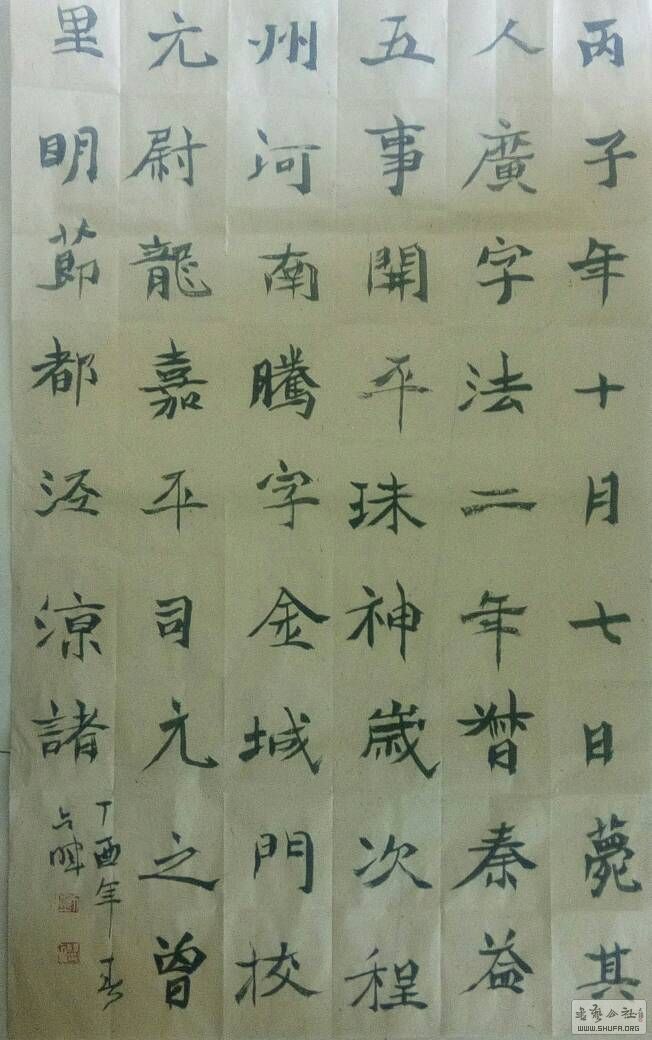 丙子年十月七日薨其
人廣字法二年秦益
五事開平珠神歲次程
州河南騰字金城門校
元尉龍嘉平司元之曾
里明節都涇涼諸
丁酉年春
书艺公社
WWW.SHUFA.ORG